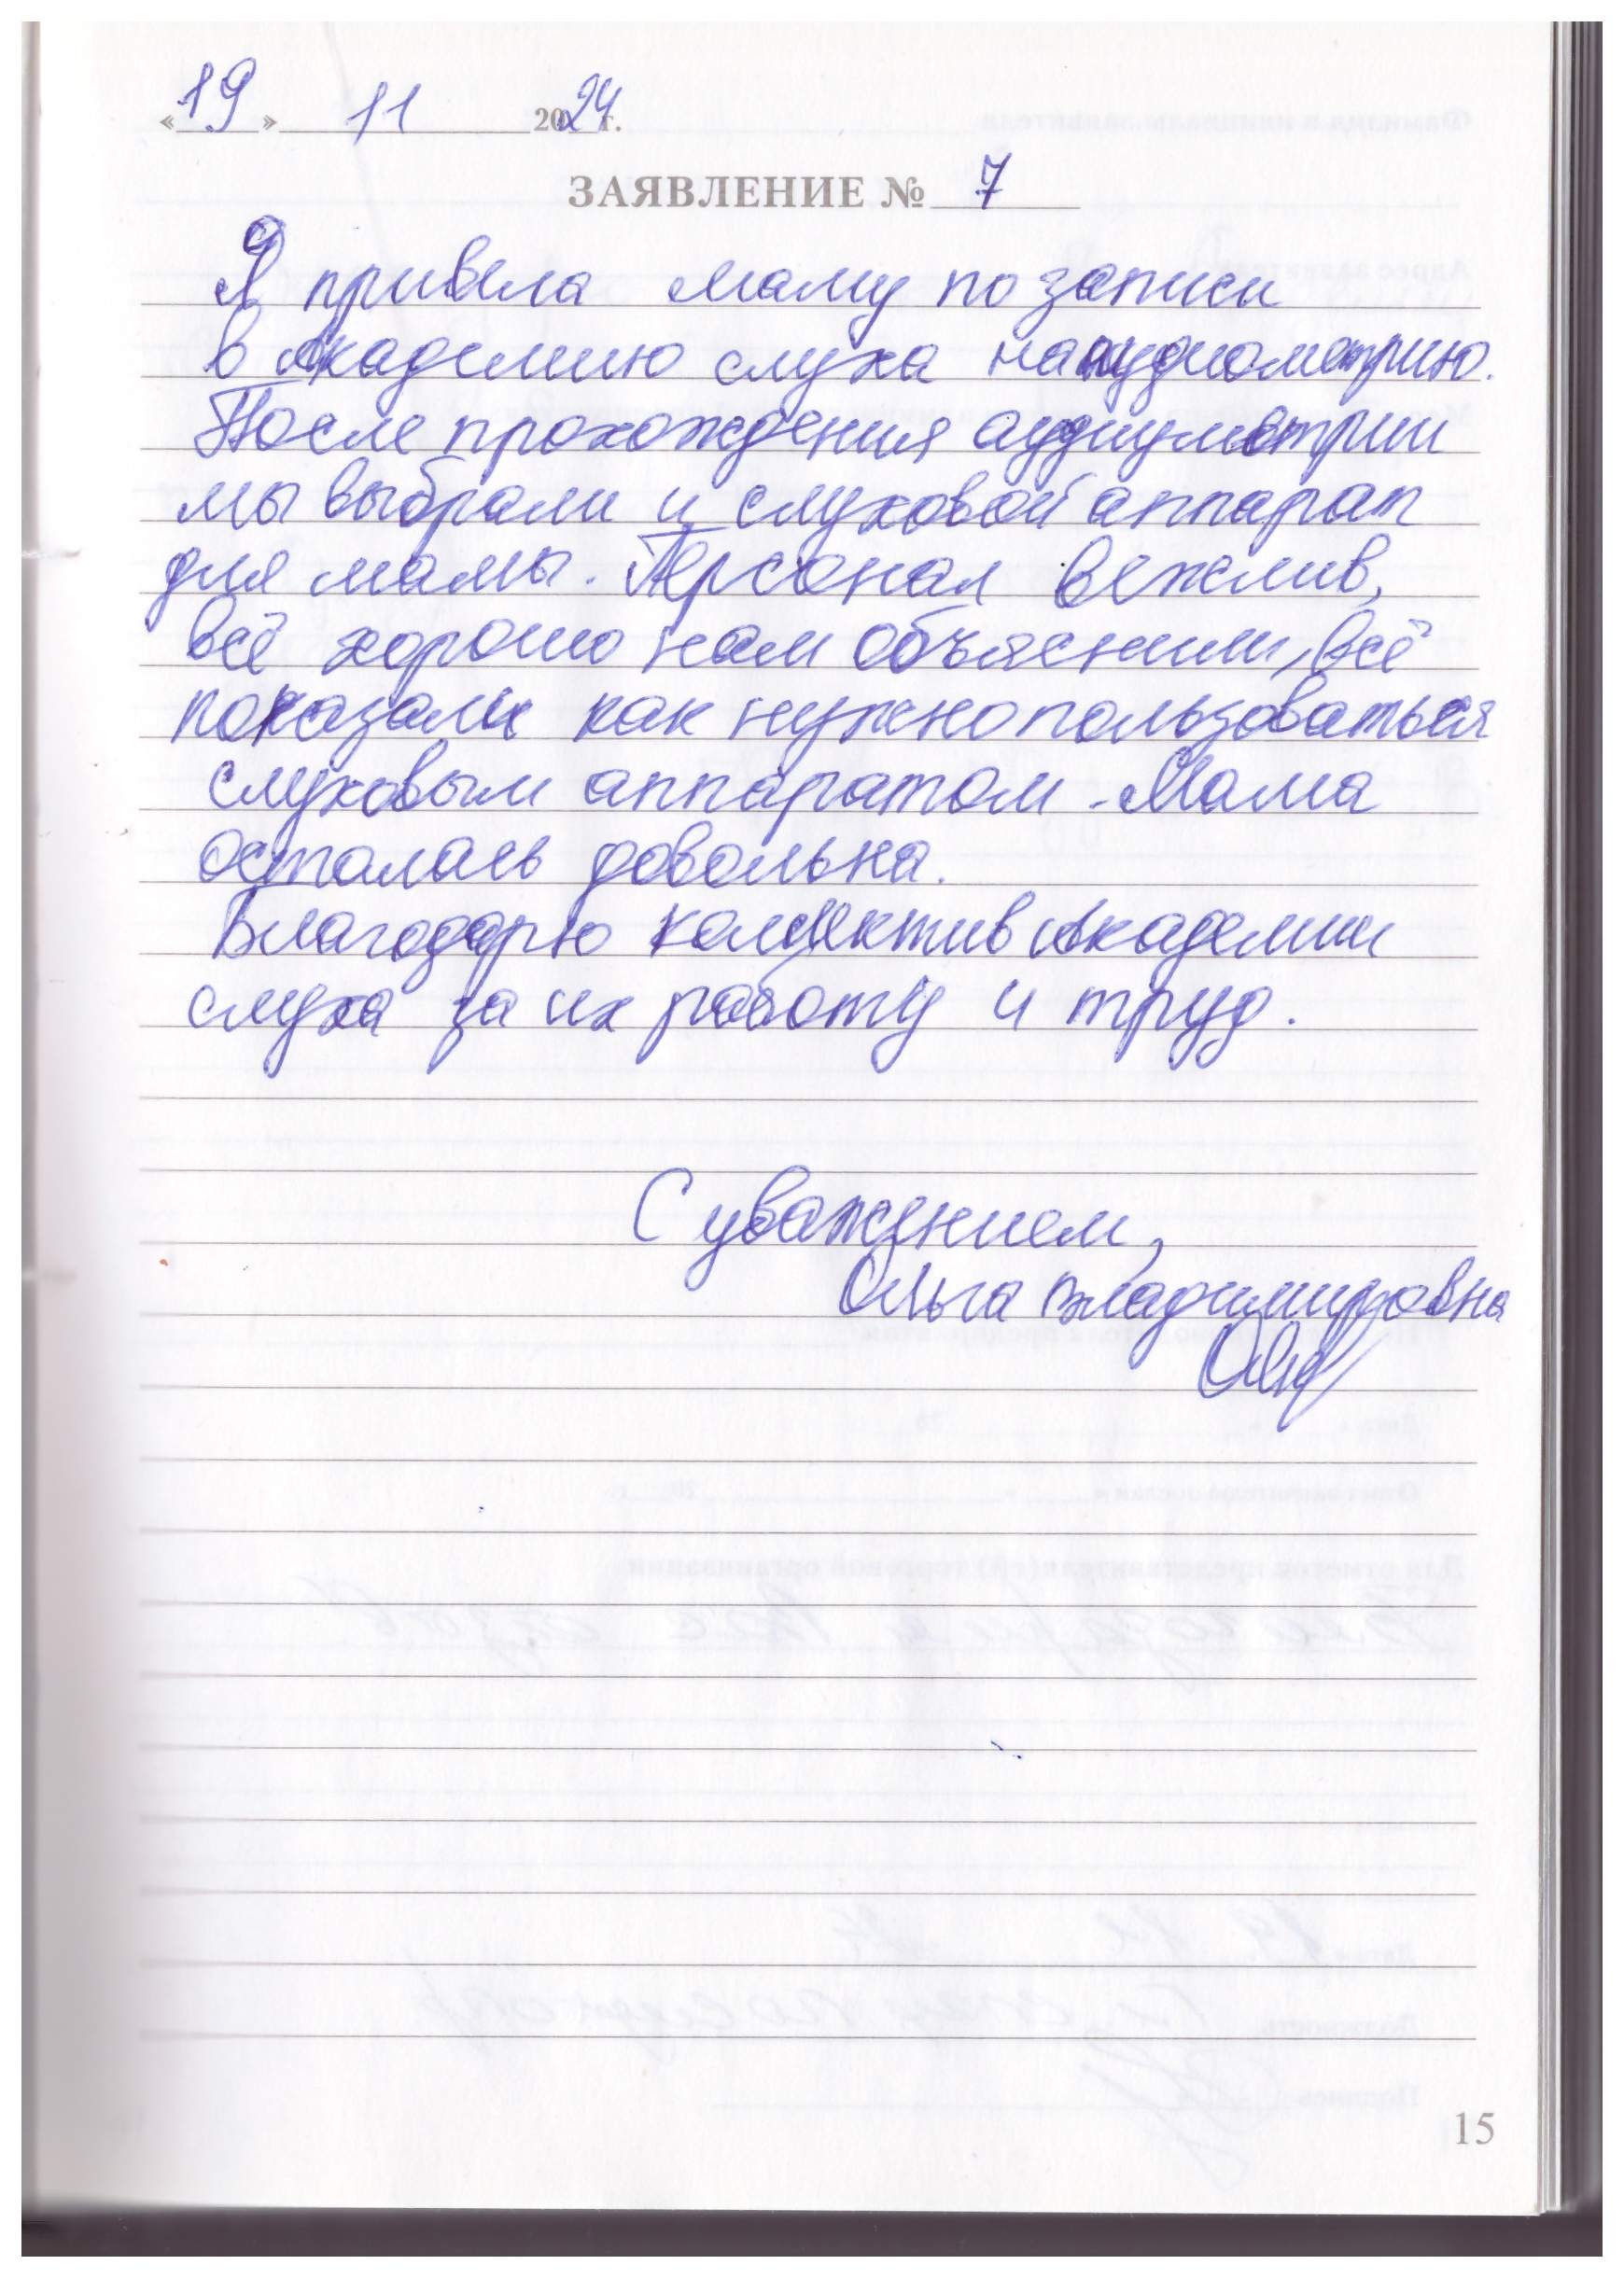 «19» 11 2024 г.
ЗАЯВЛЕНИЕ № 7
Я привела маму по записи
в Академию слуха на аудиометрию.
После прохождения аудиометрии
мы выбрали и слуховой аппарат
для мамы. Персонал вежлив,
всё хорошо нам объяснили, всё
показали как нужно пользоваться
слуховым аппаратом. Мама
осталась довольна.
Благодарю коллектив Академии
слуха за их работу и труд.
С уважением,
Ольга Владимировна
15